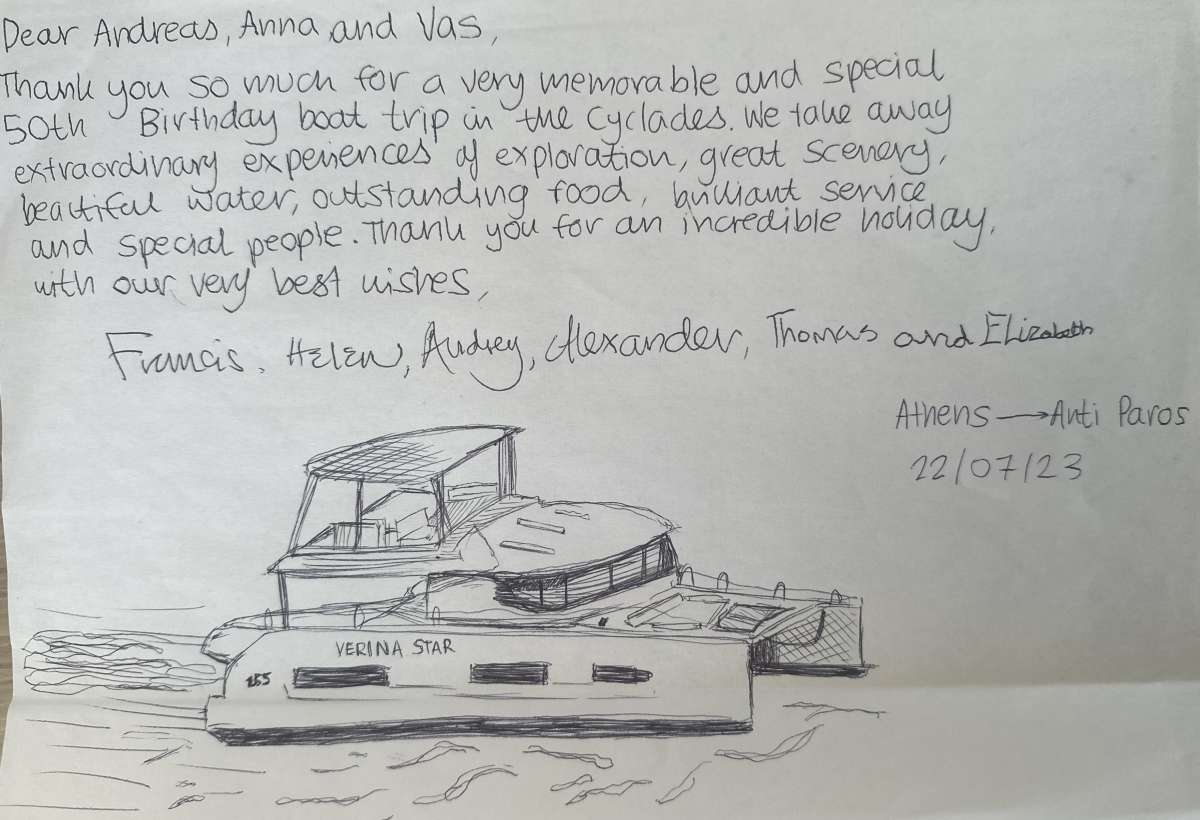 Dear Andreas, Anna and Vas,
Thank you so much for a very memorable and special
50th Birthday boat trip in the Cyclades. We take away
extraordinary experiences of exploration, great scenery,
beautiful water, outstanding food, brilliant service
and special people. Thank you for an incredible holiday,
with our very best wishes,
Francis, Helen, Audrey, Alexander, Thomas and Elizabeth
Athens → Anti Paros
22/07/23
VERINA STAR